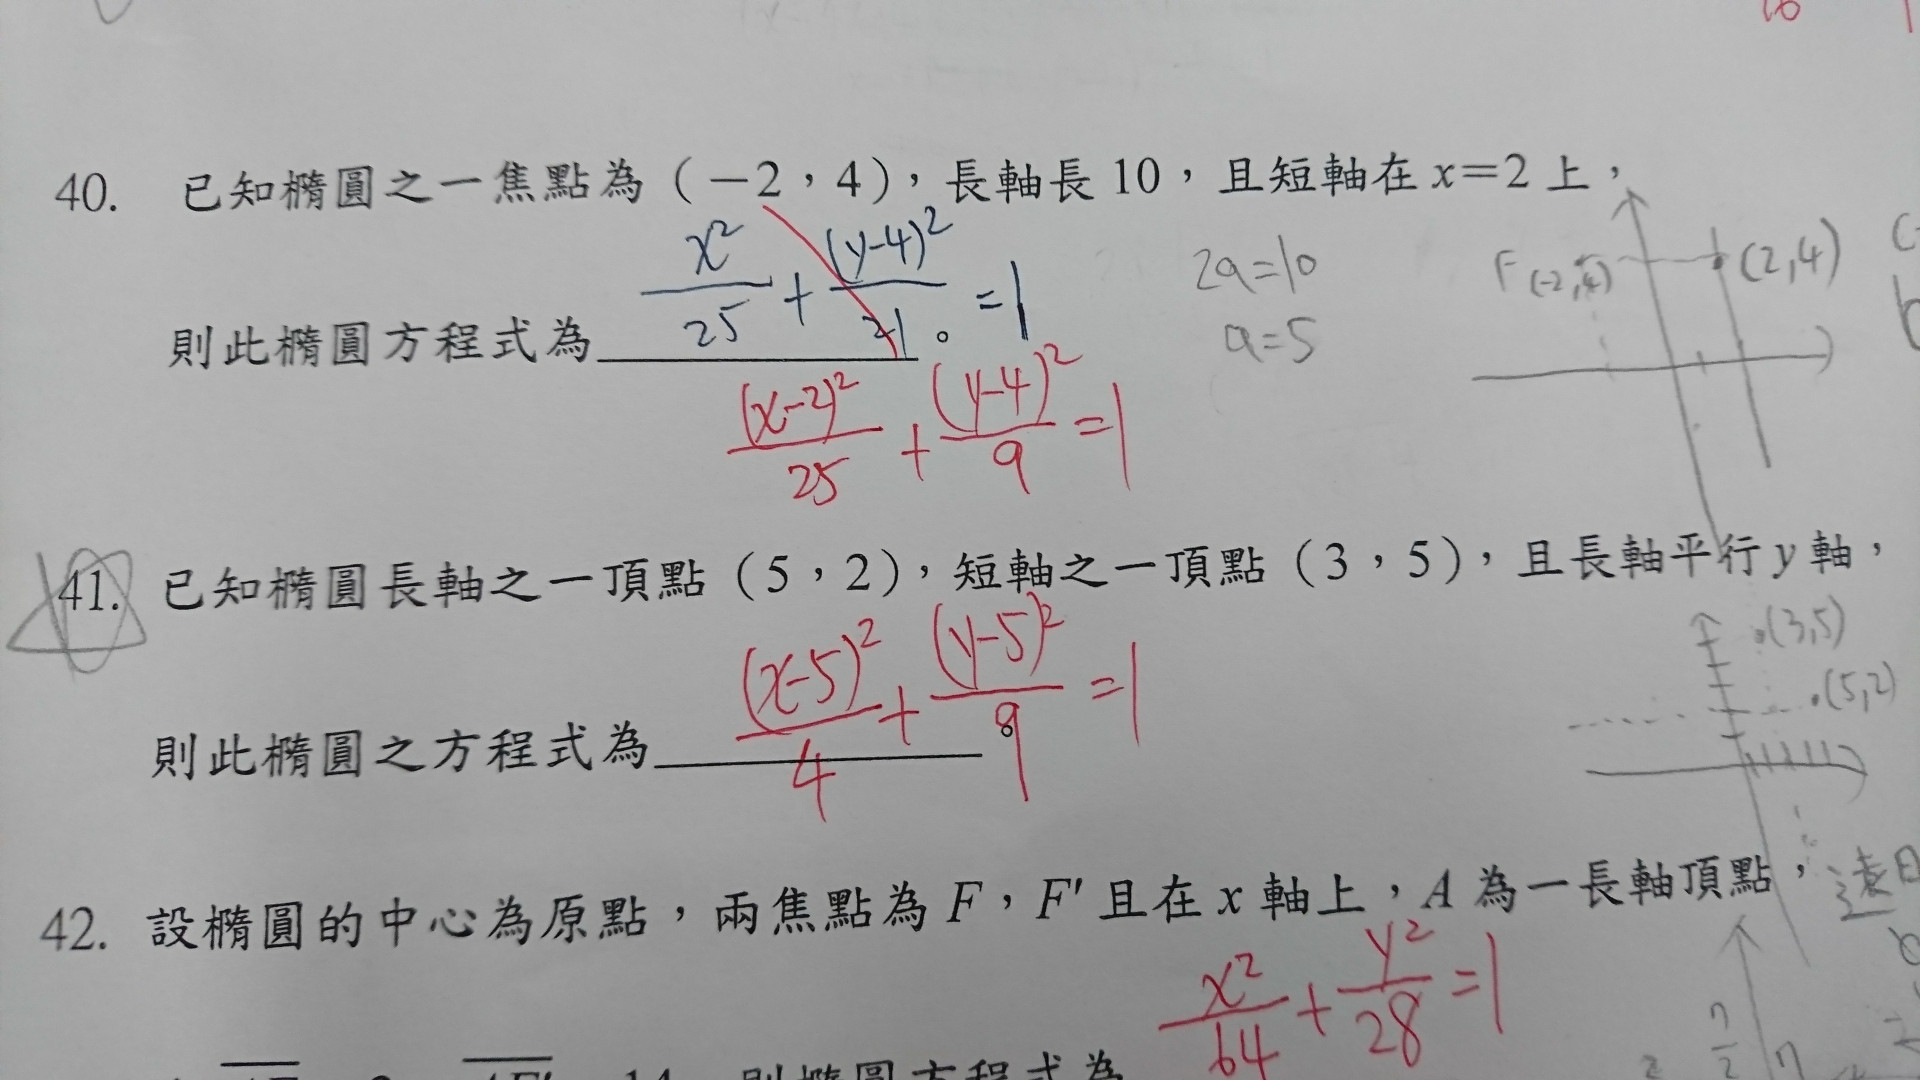 40. 已知橢圓之一焦點為（－2，4），長軸長 10，且短軸在 x＝2 上，
x²/25 + (y-4)²/21 = 1
2a=10
a=5
F(-2,4)
(2,4)
則此橢圓方程式為＿＿＿＿＿。
(x-2)²/25 + (y-4)²/9 = 1
41. 已知橢圓長軸之一頂點（5，2），短軸之一頂點（3，5），且長軸平行 y 軸，
(x-5)²/4 + (y-5)²/9 = 1
(3,5)
(5,2)
則此橢圓之方程式為＿＿＿＿＿。
42. 設橢圓的中心為原點，兩焦點為 F，F′ 且在 x 軸上，A 為一長軸頂點，
x²/64 + y²/28 = 1
則橢圓方程式為